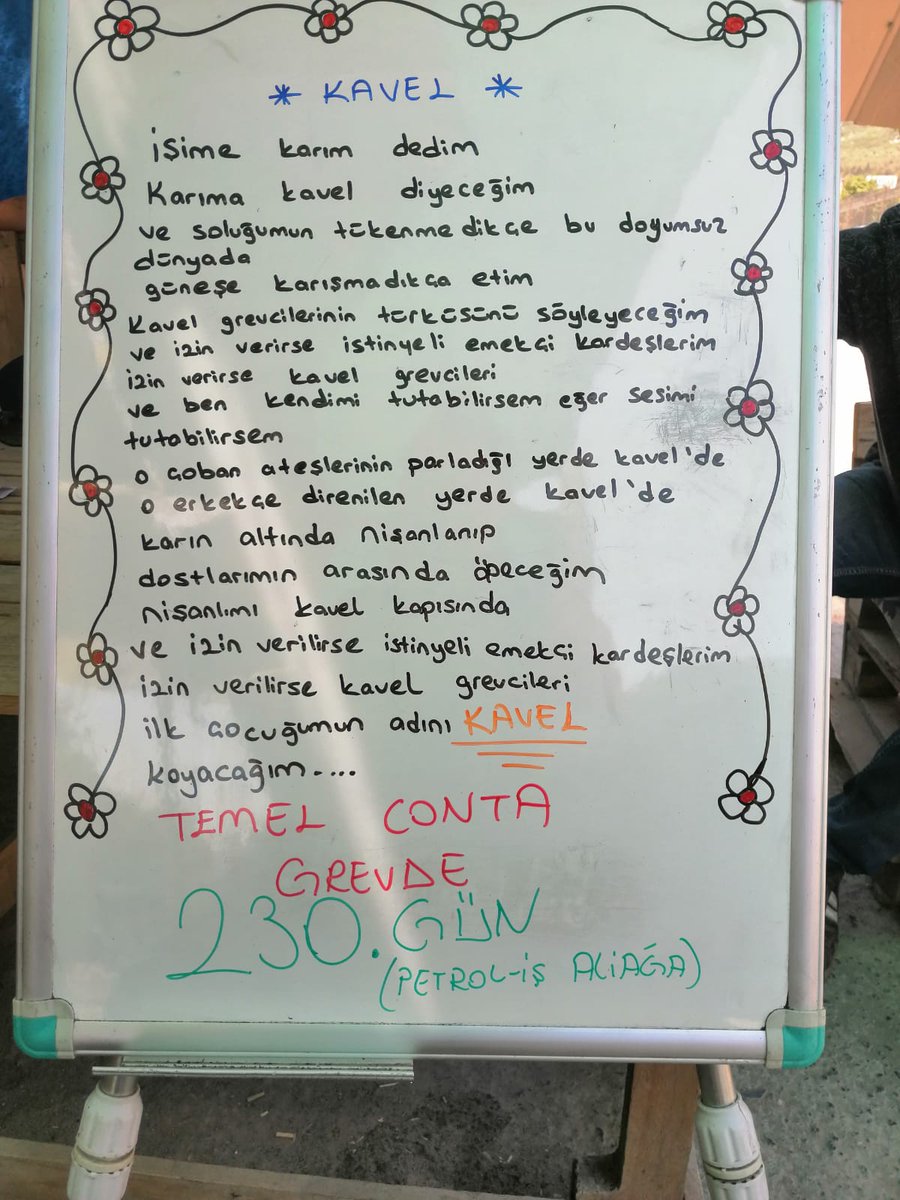 * KAVEL *
işime karım dedim
Karıma kavel diyeceğim
ve soluğumun tükenmedikçe bu doyumsuz
dünyada
güneşe karışmadıkça etim
Kavel grevcilerinin türküsünü söyleyeceğim
ve izin verirse istinyeli emekçi kardeşlerim
izin verirse kavel grevcileri
ve ben kendimi tutabilirsem eğer sesimi
tutabilirsem
o çoban ateşlerinin parladığı yerde kavel'de
o erkekçe direnilen yerde kavel'de
karın altında nişanlanıp
dostlarımın arasında öpeceğim
nişanlımı kavel kapısında
ve izin verilirse istinyeli emekçi kardeşlerim
izin verilirse kavel grevcileri
ilk çocuğumun adını KAVEL
koyacağım....
TEMEL CONTA
GREVDE
230.GÜN
(PETROL-İŞ ALİAĞA)